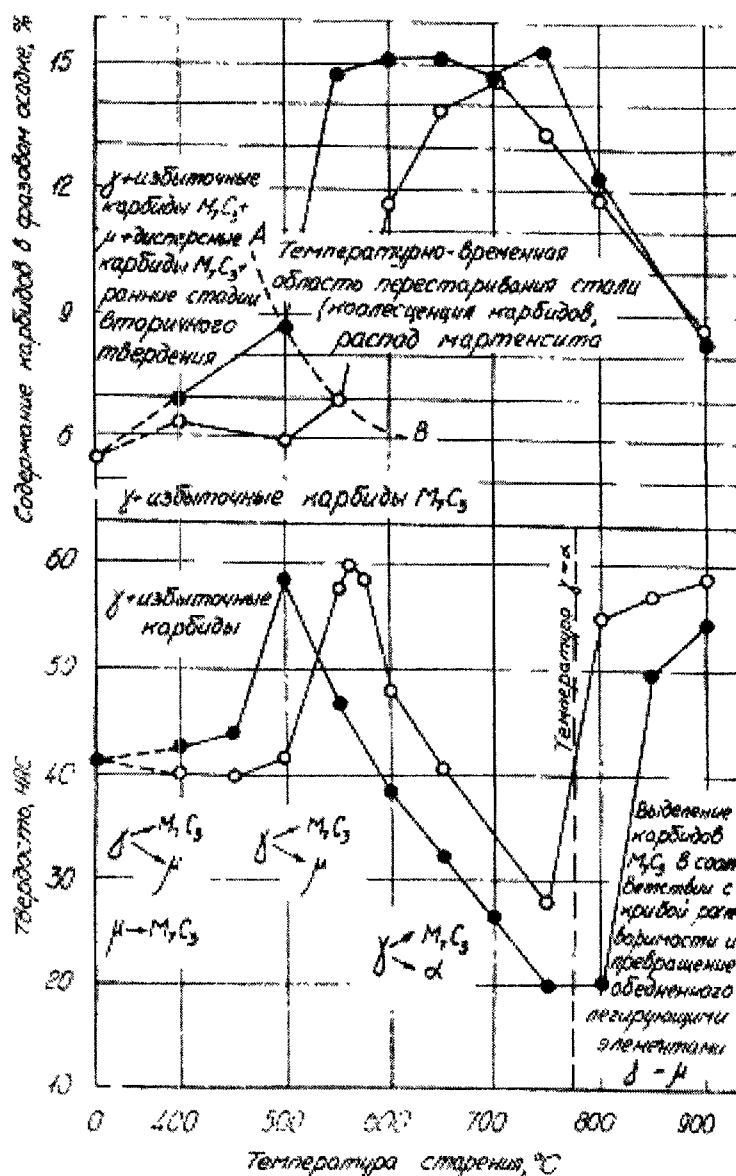 Содержание карбидов в фазовом осадке, %
15
12
9
6
γ+избыточные
карбиды M₇C₃+
μ+дисперсные
карбиды M₇C₃+
ранние стадии
вторичного
твердения
A
Температурно-временная
область перестаривания стали
(коалесценция карбидов,
распад мартенсита
B
γ+избыточные карбиды M₇C₃
Твёрдость, HRC
60
50
40
30
20
10
γ+избыточные
карбиды
Температура γ=α
γ M₇C₃
μ
γ M₇C₃
μ
μ→M₇C₃
γ M₇C₃
α
Выделение
карбидов
M₇C₃ в соот
ветствии с
кривой раст
воримости и
превращение
обедненного
легирующими
элементами
γ - μ
0 400 500 600 700 800 900
Температура старения, °C